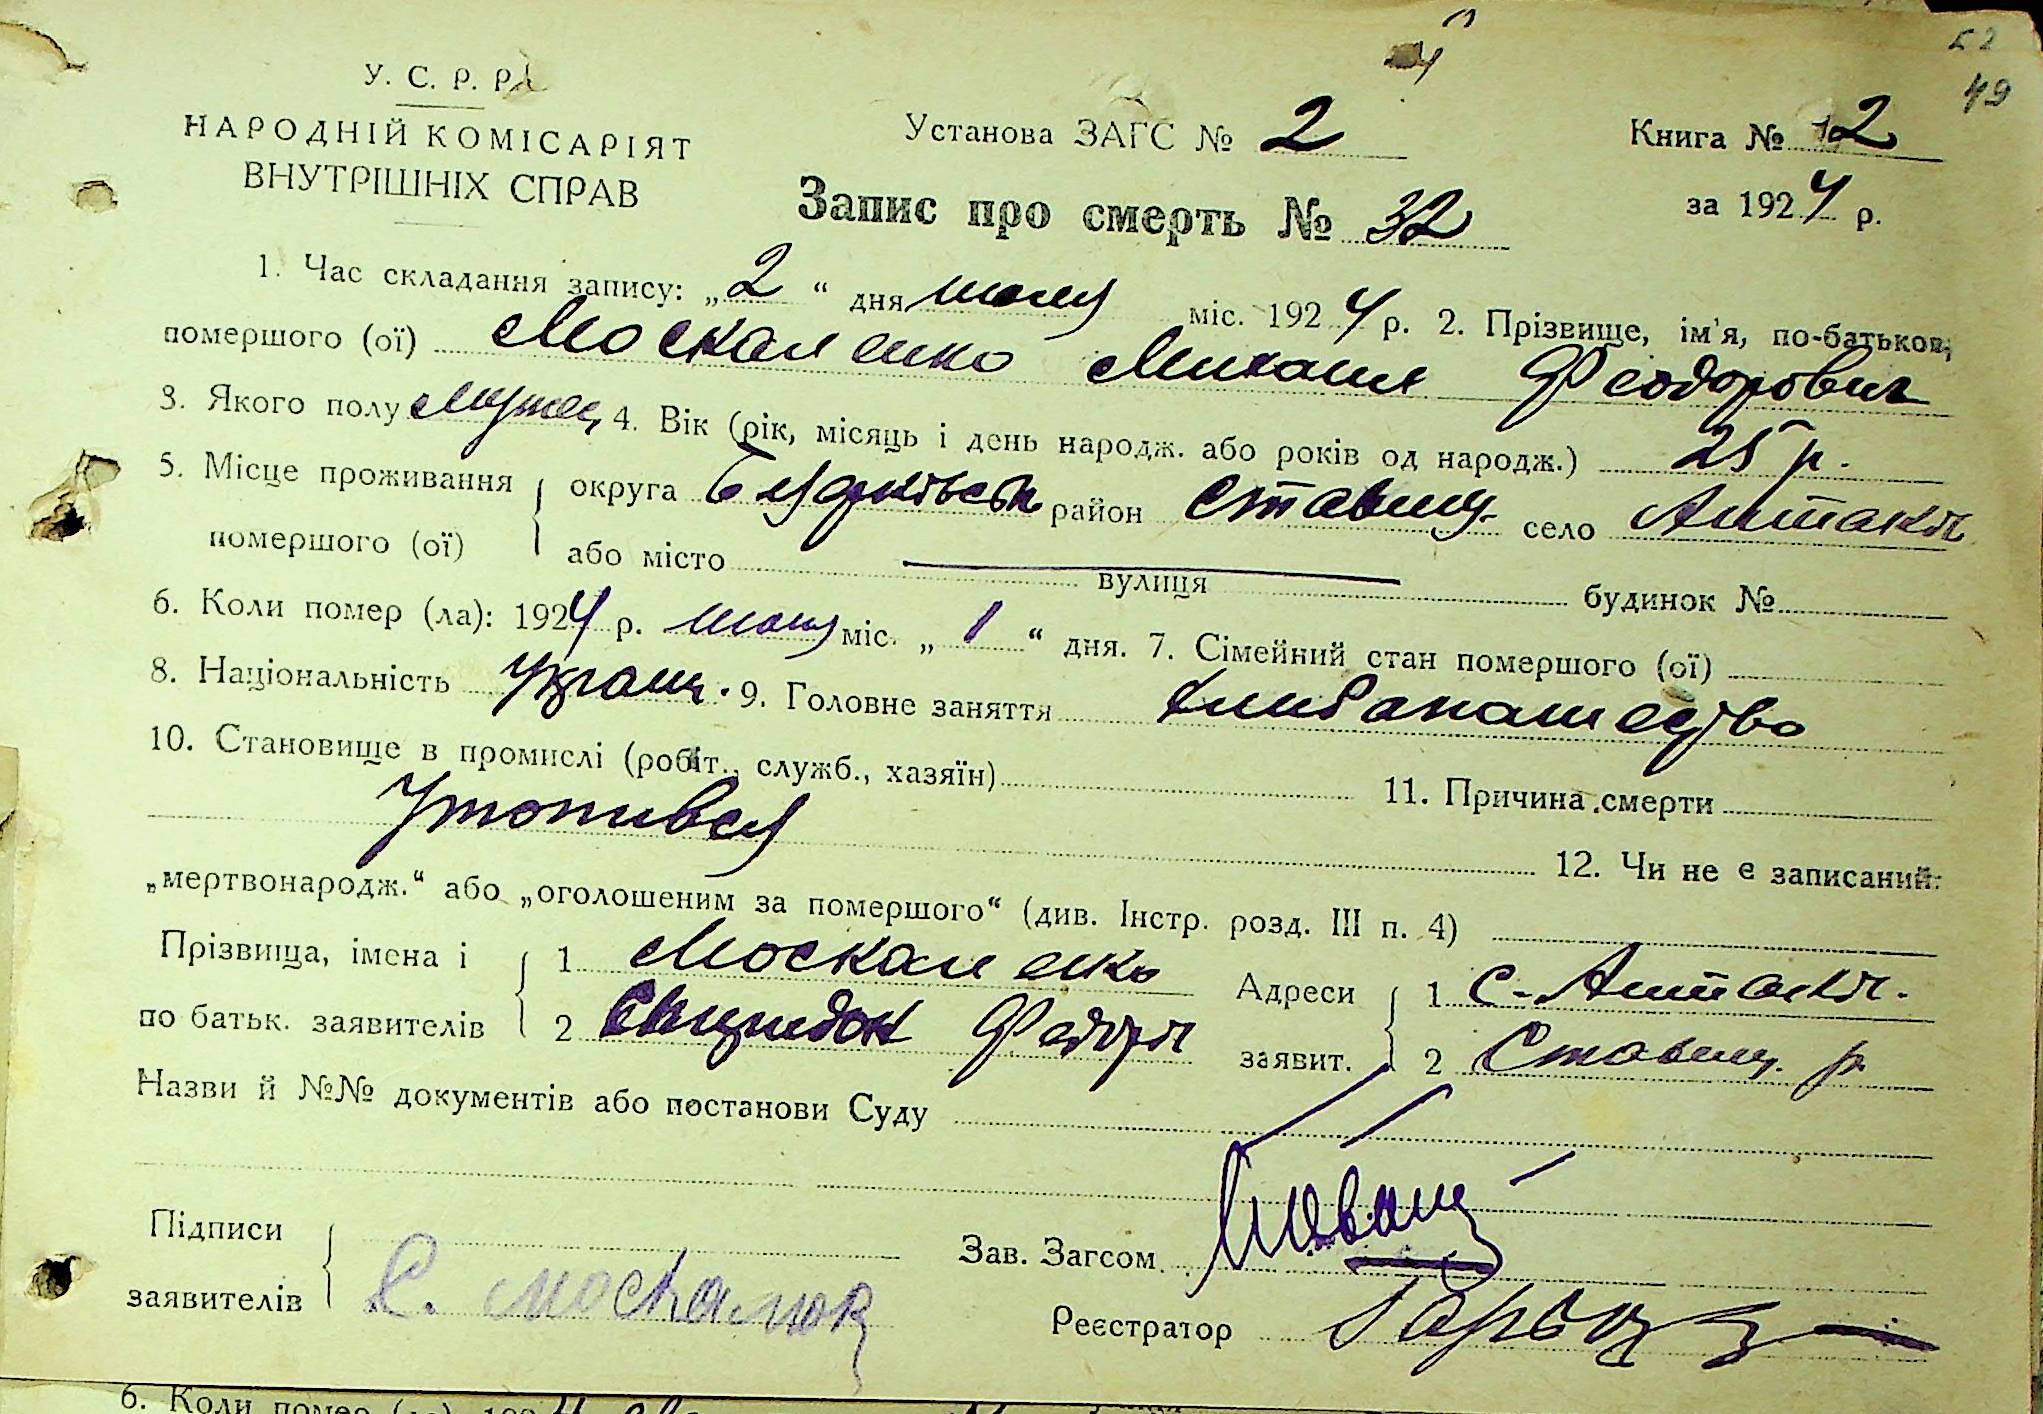 52
49
У. С. Р. Р.
НАРОДНІЙ КОМІСАРІЯТ
ВНУТРІШНІХ СПРАВ
Установа ЗАГС № 2
Книга № 2
за 1924 р.
Запис про смерть № 32
1. Час складання запису: „2“ дня июля міс. 1924 р. 2. Прізвище, ім'я, по-батькові,
помершого (ої) Москаленко Михаил Феодорович
3. Якого полу 4. Вік (рік, місяць і день народж. або років од народж.) 25 р.
5. Місце проживання помершого (ої) округа район Ставищ. село Антакія
або місто вулиця будинок №
6. Коли помер (ла): 1924 р. июля міс. „1“ дня. 7. Сімейний стан помершого (ої)
8. Національність Украин. 9. Головне заняття
10. Становище в промислі (робіт., служб., хазяїн) 11. Причина смерти
Утопився
12. Чи не є записаний:
„мертвонародж.“ або „оголошеним за помершого“ (див. Інстр. розд. III п. 4)
Прізвища, імена і по батьк. заявителів
1 Москаленко
2 Федор
Адреси заявит.
1 с. Антакія.
2 Ставищ. р
Назви й №№ документів або постанови Суду
Підписи заявителів
Зав. Загсом
Реєстратор
6. Коли помер (ла): 1924